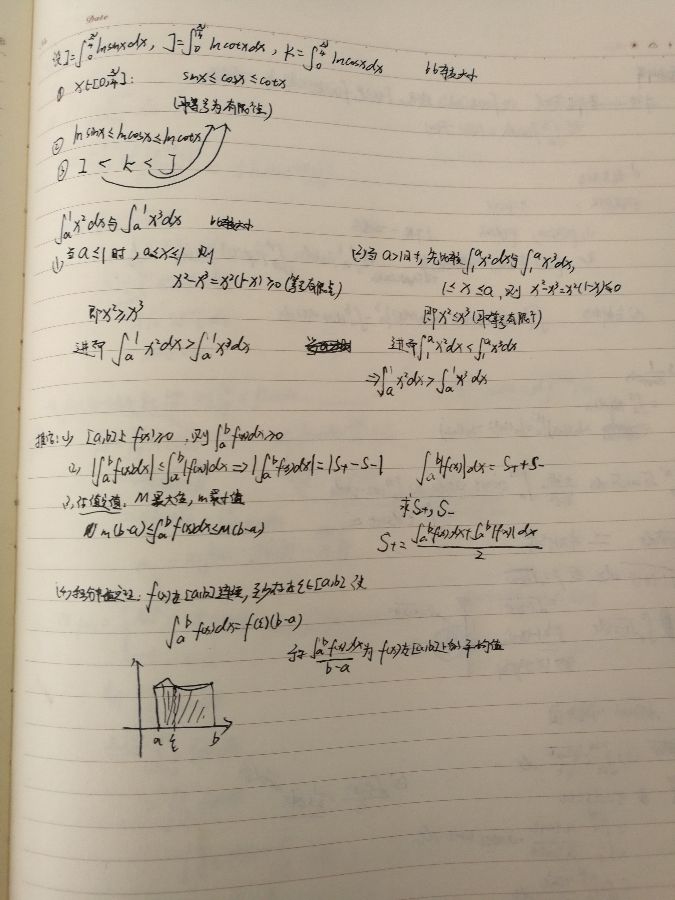 Date
设I=∫₀^{π/4} lnsinxdx, J=∫₀^{π/4} lncotxdx, K=∫₀^{π/4} lncosxdx 比较大小
① x∈[0,π/4]: sinx≤cosx≤cotx
(取等号为有限个点)
② lnsinx≤lncosx≤lncotx
③ I < K < J
∫ₐ¹x²dx与∫ₐ¹x³dx 比较大小
(1) 当a≤1时, a≤x≤1 则
x²-x³=x²(1-x)≥0(等号有限点)
即x²≥x³
进而∫ₐ¹x²dx>∫ₐ¹x³dx
(2)当a>1时, 先比较∫₁ᵃx²dx与∫₁ᵃx³dx,
1≤x≤a, 则 x²-x³=x²(1-x)≤0
即x²≤x³(取等号有限个)
进而∫₁ᵃx²dx<∫₁ᵃx³dx
⇒∫ₐ¹x²dx>∫ₐ¹x³dx
推论: (1) [a,b]上f(x)≥0, 则∫ₐᵇf(x)dx≥0
(2) |∫ₐᵇf(x)dx|≤∫ₐᵇ|f(x)|dx⇒|∫ₐᵇf(x)dx|=|S₊-S₋| ∫ₐᵇ|f(x)|dx=S₊+S₋
求S₊,S₋
S₊=(∫ₐᵇf(x)dx+∫ₐᵇ|f(x)|dx)/2
(3) 估值定理, M最大值, m最小值
则 m(b-a)≤∫ₐᵇf(x)dx≤M(b-a)
(4) 积分中值定理, f(x)在[a,b]连续, 至少存在ξ∈[a,b] 使
∫ₐᵇf(x)dx=f(ξ)(b-a)
∫ₐᵇf(x)dx/(b-a)为f(x)在[a,b]上的平均值
a ξ b